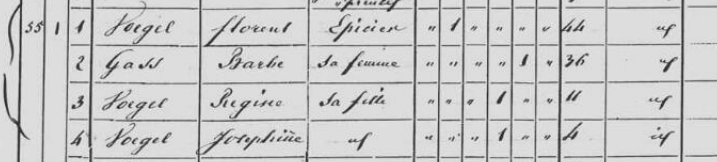 35 1 1 Voegel florent Epicier " 1 " " " " 44 if
2 Gass Barbe Sa femme " " " " 1 " 36 if
3 Voegel Regine Sa fille " " " 1 " " 11 if
4 Voegel Josephine if " " " 1 " " 4 if